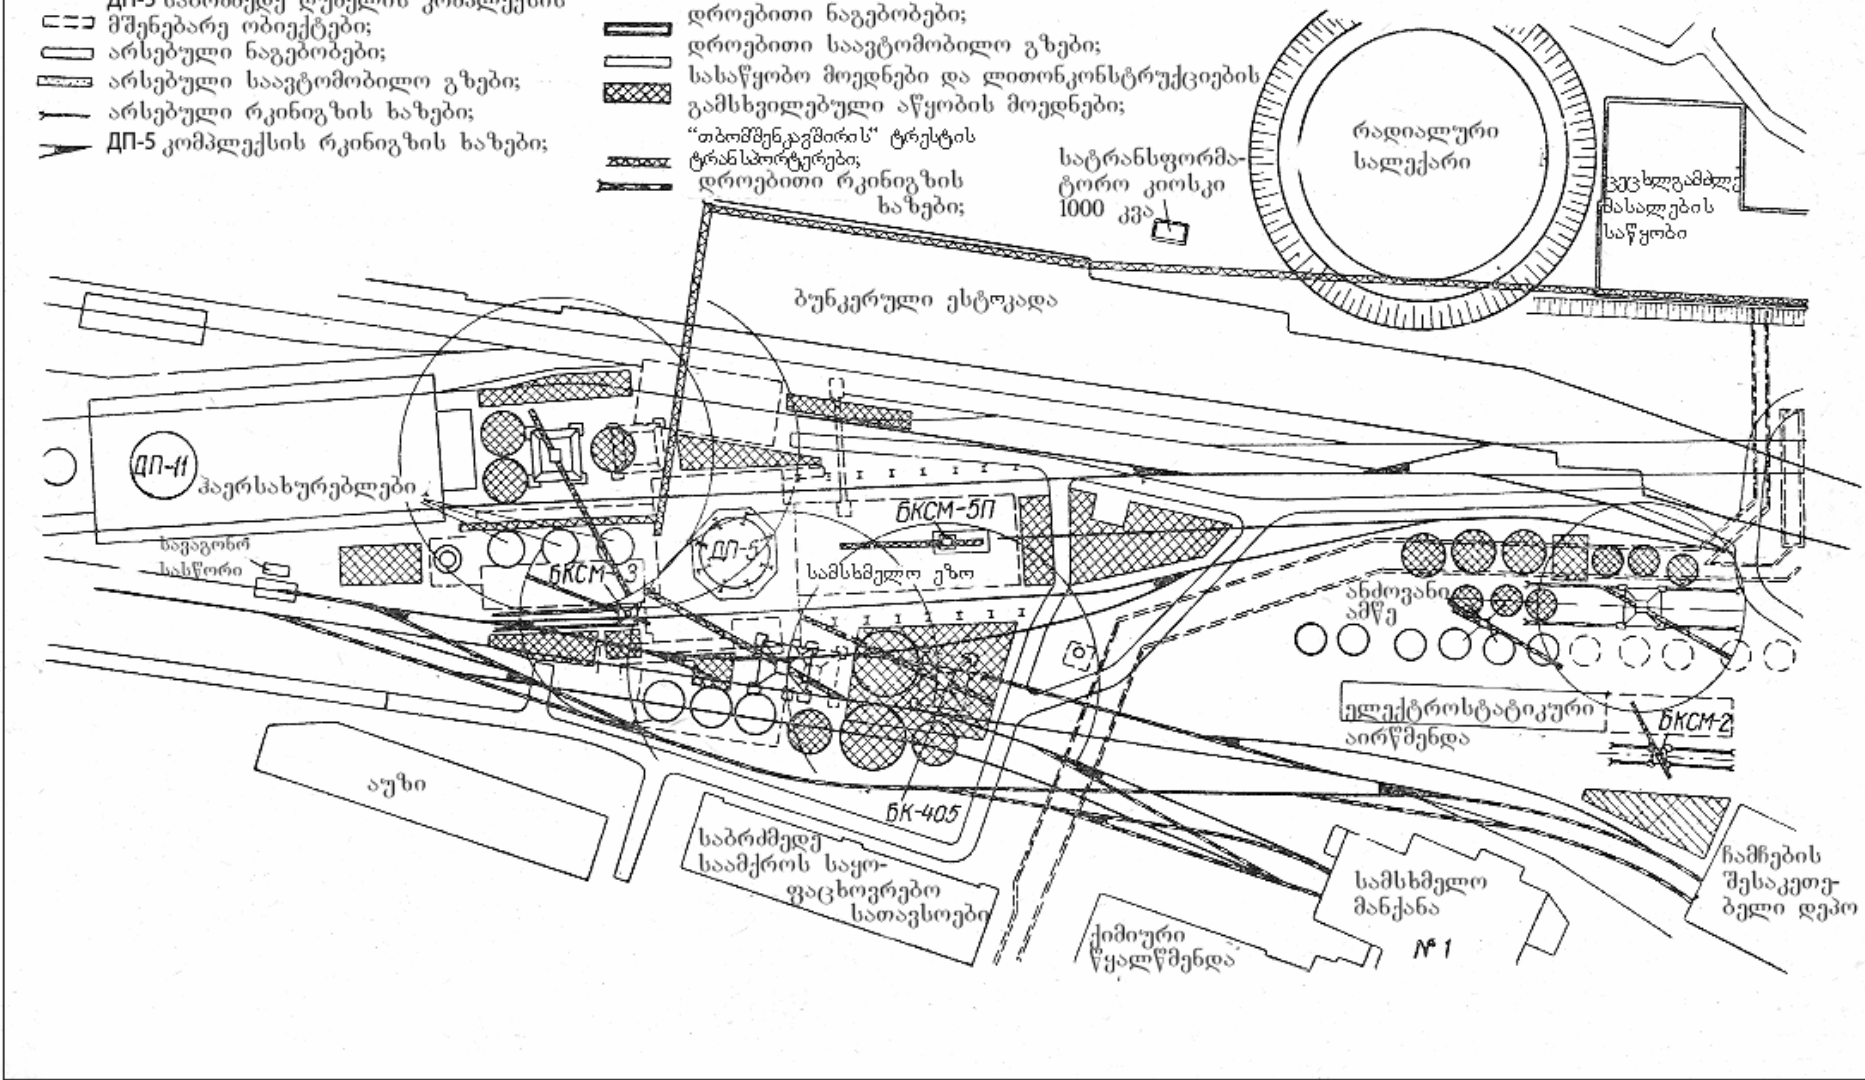 ДП-5 საბრძმედე ღუმელის კომპლექსის
მშენებარე ობიექტები;
არსებული ნაგებობები;
არსებული საავტომობილო გზები;
არსებული რკინიგზის ხაზები;
ДП-5 კომპლექსის რკინიგზის ხაზები;
დროებითი ნაგებობები;
დროებითი საავტომობილო გზები;
სასაწყობო მოედნები და ლითონკონსტრუქციების
გამსხვილებული აწყობის მოედნები;
“თბომშენკავშირის“ ტრესტის
ტრანსპორტერები;
დროებითი რკინიგზის
ხაზები;
სატრანსფორმა-
ტორო კიოსკი
1000 კვა
რადიალური
სალექარი
ცეცხლგამძლე
მასალების
საწყობი
ბუნკერული ესტოკადა
ДП-11
ჰაერსახურებლები
სავაგონო
სასწორი
БКСМ-3
ДП-5
БКСМ-5П
სამსხმელო ეზო
ანძოვანი
ამწე
ელექტროსტატიკური
აირწმენდა
БКСМ-2
აუზი
БК-405
საბრძმედე
საამქროს საყო-
ფაცხოვრებო
სათავსოები
ქიმიური
წყალწმენდა
სამსხმელო
მანქანა
№ 1
ჩამჩების
შესაკეთე-
ბელი დეპო